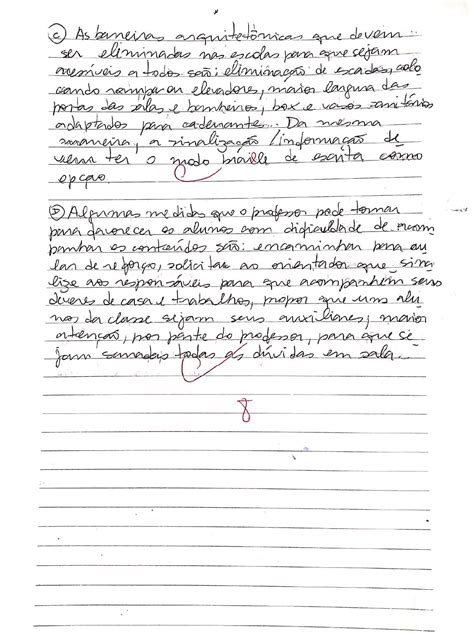 C) As barreiras arquitetônicas que devem
ser eliminadas nas escolas para que sejam
acessíveis a todos são: eliminação de escadas, colo
cando rampa ou elevadores, maior largura das
portas das salas e banheiros, box e vasos sanitários
adaptados para cadeirante. Da mesma
maneira, a sinalização/informação de
vem ter o modo braile de escrita como
opção.
D) Algumas medidas que o professor pode tomar
para favorecer os alunos com dificuldade de acom
panhar os conteúdos são: encaminhar para au
las de reforço, solicitar ao orientador que sina
lize aos responsáveis para que acompanhem seus
deveres de casa e trabalhos, propor que uns alu
nos da classe sejam seus auxiliares; maior
atenção, por parte do professor, para que se
jam sanadas todas as dúvidas em sala.
8